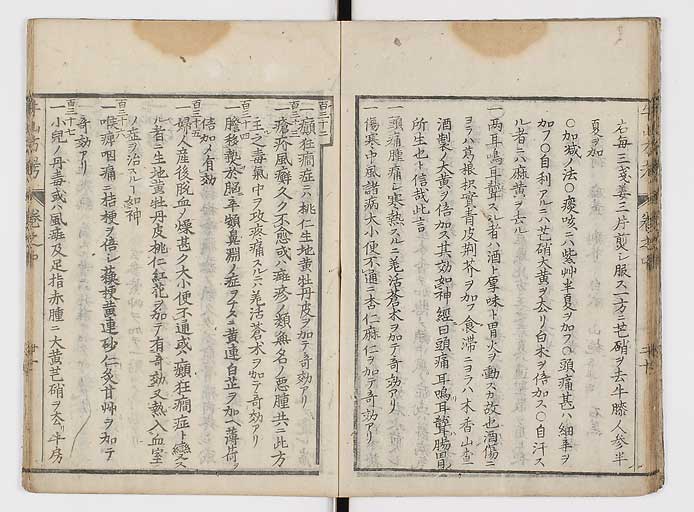 右每三戔姜三片煎シ服ス一方ニ芒硝ヲ去牛膝人参半
夏ヲ加
○加減ノ法○痰咳ニハ柴胡半夏ヲ加フ○頭痛甚ハ細辛ヲ
加フ○自利アルニハ芒硝大黄ヲ去リ白朮ヲ倍加ス○自汗ス
ル者ニハ麻黄ヲ去ル
一両耳鳴耳聾スル者ハ酒ト厚味ト胃火ヲ動スカ故也酒傷ニ
ヨラハ葛根枳實青皮荊芥ヲ加フ食滞ニヨラハ木香山査ニ
酒製ノ大黄ヲ倍加ス其効如神經曰頭痛耳鳴耳聾腸胃ノ
所生也ト信哉此言
一頭痛腫痛シ寒熱スルニ羌活蒼朮ヲ加テ奇効アリ
一傷寒中風諸病大小便不通ニ杏仁麻仁ヲ加テ奇効アリ
百三十二
一癲狂癇症ニハ桃仁生地黄牡丹皮ヲ加テ奇効アリ
一瘡疥風癬久ク不愈或ハ斑疹ノ類無名ノ悪腫共ニ此方
主之毒氣中ヲ攻疼痛スルニハ羌活蒼朮ヲ加テ奇効アリ
百三十四
一膽移熱於脳辛頞鼻淵ノ症ヲナスニ黄連白芷ヲ加ヘ薄荷ヲ
倍加メ有効
百三十五
一婦人産後脱血ノ燥甚ク大小便不通或ハ癲狂癇症ト變ス
ル者ニ生地黄牡丹皮桃仁紅花ヲ加テ有奇効又熱入血室
ノ症ヲ治スル丁如神
百三十六
一喉痺咽痛ニ桔梗ヲ倍シ黄連砂仁炙甘艸ヲ加テ
奇効アリ
百三十七
一小兒ノ丹毒或ハ風斑及足指赤腫ニ大黄芒硝ヲ去リ牛房